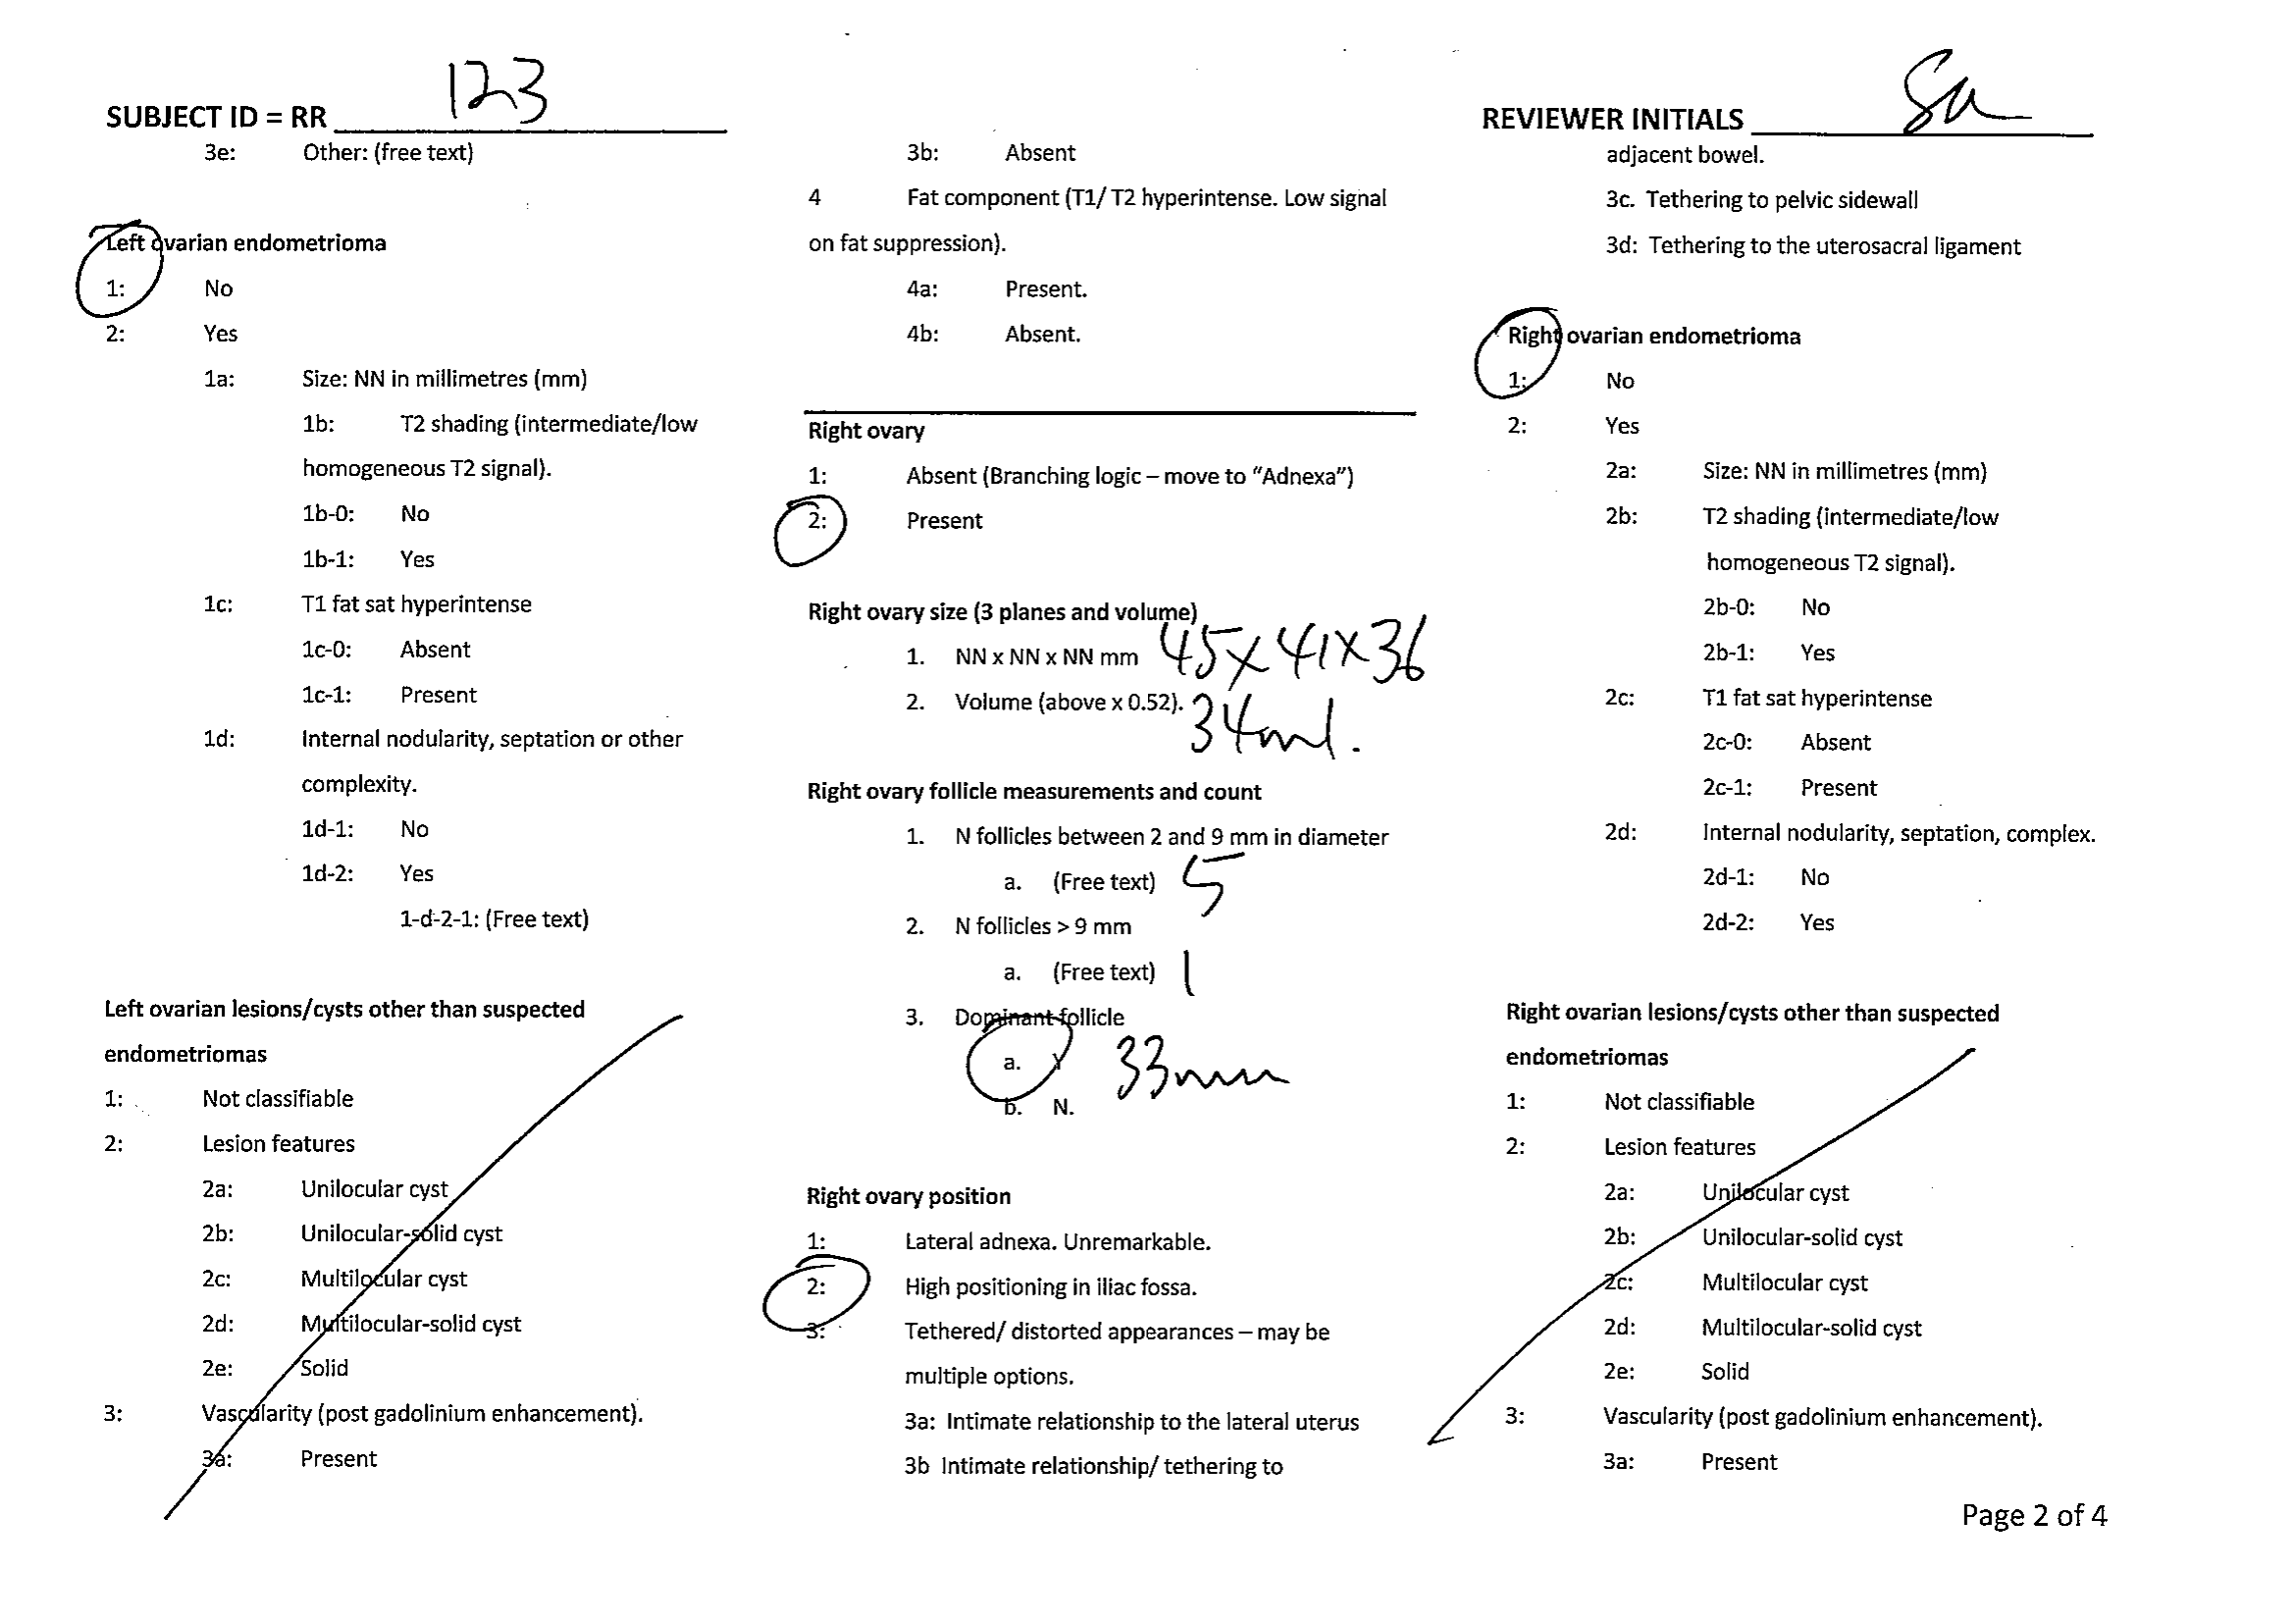 SUBJECT ID = RR 123
REVIEWER INITIALS
3e: Other: (free text)
Left ovarian endometrioma
1: No
2: Yes
1a: Size: NN in millimetres (mm)
1b: T2 shading (intermediate/low
homogeneous T2 signal).
1b-0: No
1b-1: Yes
1c: T1 fat sat hyperintense
1c-0: Absent
1c-1: Present
1d: Internal nodularity, septation or other
complexity.
1d-1: No
1d-2: Yes
1-d-2-1: (Free text)
Left ovarian lesions/cysts other than suspected
endometriomas
1: Not classifiable
2: Lesion features
2a: Unilocular cyst
2b: Unilocular-solid cyst
2c: Multilocular cyst
2d: Multilocular-solid cyst
2e: Solid
3: Vascularity (post gadolinium enhancement).
3a: Present
3b: Absent
4 Fat component (T1/ T2 hyperintense. Low signal
on fat suppression).
4a: Present.
4b: Absent.
Right ovary
1: Absent (Branching logic – move to “Adnexa”)
2: Present
Right ovary size (3 planes and volume)
1. NN x NN x NN mm 45 x 41 x 36
2. Volume (above x 0.52). 34ml.
Right ovary follicle measurements and count
1. N follicles between 2 and 9 mm in diameter
a. (Free text) 5
2. N follicles > 9 mm
a. (Free text) 1
3. Dominant follicle
a. Y 33mm
b. N.
Right ovary position
1: Lateral adnexa. Unremarkable.
2: High positioning in iliac fossa.
3: Tethered/ distorted appearances – may be
multiple options.
3a: Intimate relationship to the lateral uterus
3b Intimate relationship/ tethering to
adjacent bowel.
3c. Tethering to pelvic sidewall
3d: Tethering to the uterosacral ligament
Right ovarian endometrioma
1: No
2: Yes
2a: Size: NN in millimetres (mm)
2b: T2 shading (intermediate/low
homogeneous T2 signal).
2b-0: No
2b-1: Yes
2c: T1 fat sat hyperintense
2c-0: Absent
2c-1: Present
2d: Internal nodularity, septation, complex.
2d-1: No
2d-2: Yes
Right ovarian lesions/cysts other than suspected
endometriomas
1: Not classifiable
2: Lesion features
2a: Unilocular cyst
2b: Unilocular-solid cyst
2c: Multilocular cyst
2d: Multilocular-solid cyst
2e: Solid
3: Vascularity (post gadolinium enhancement).
3a: Present
Page 2 of 4